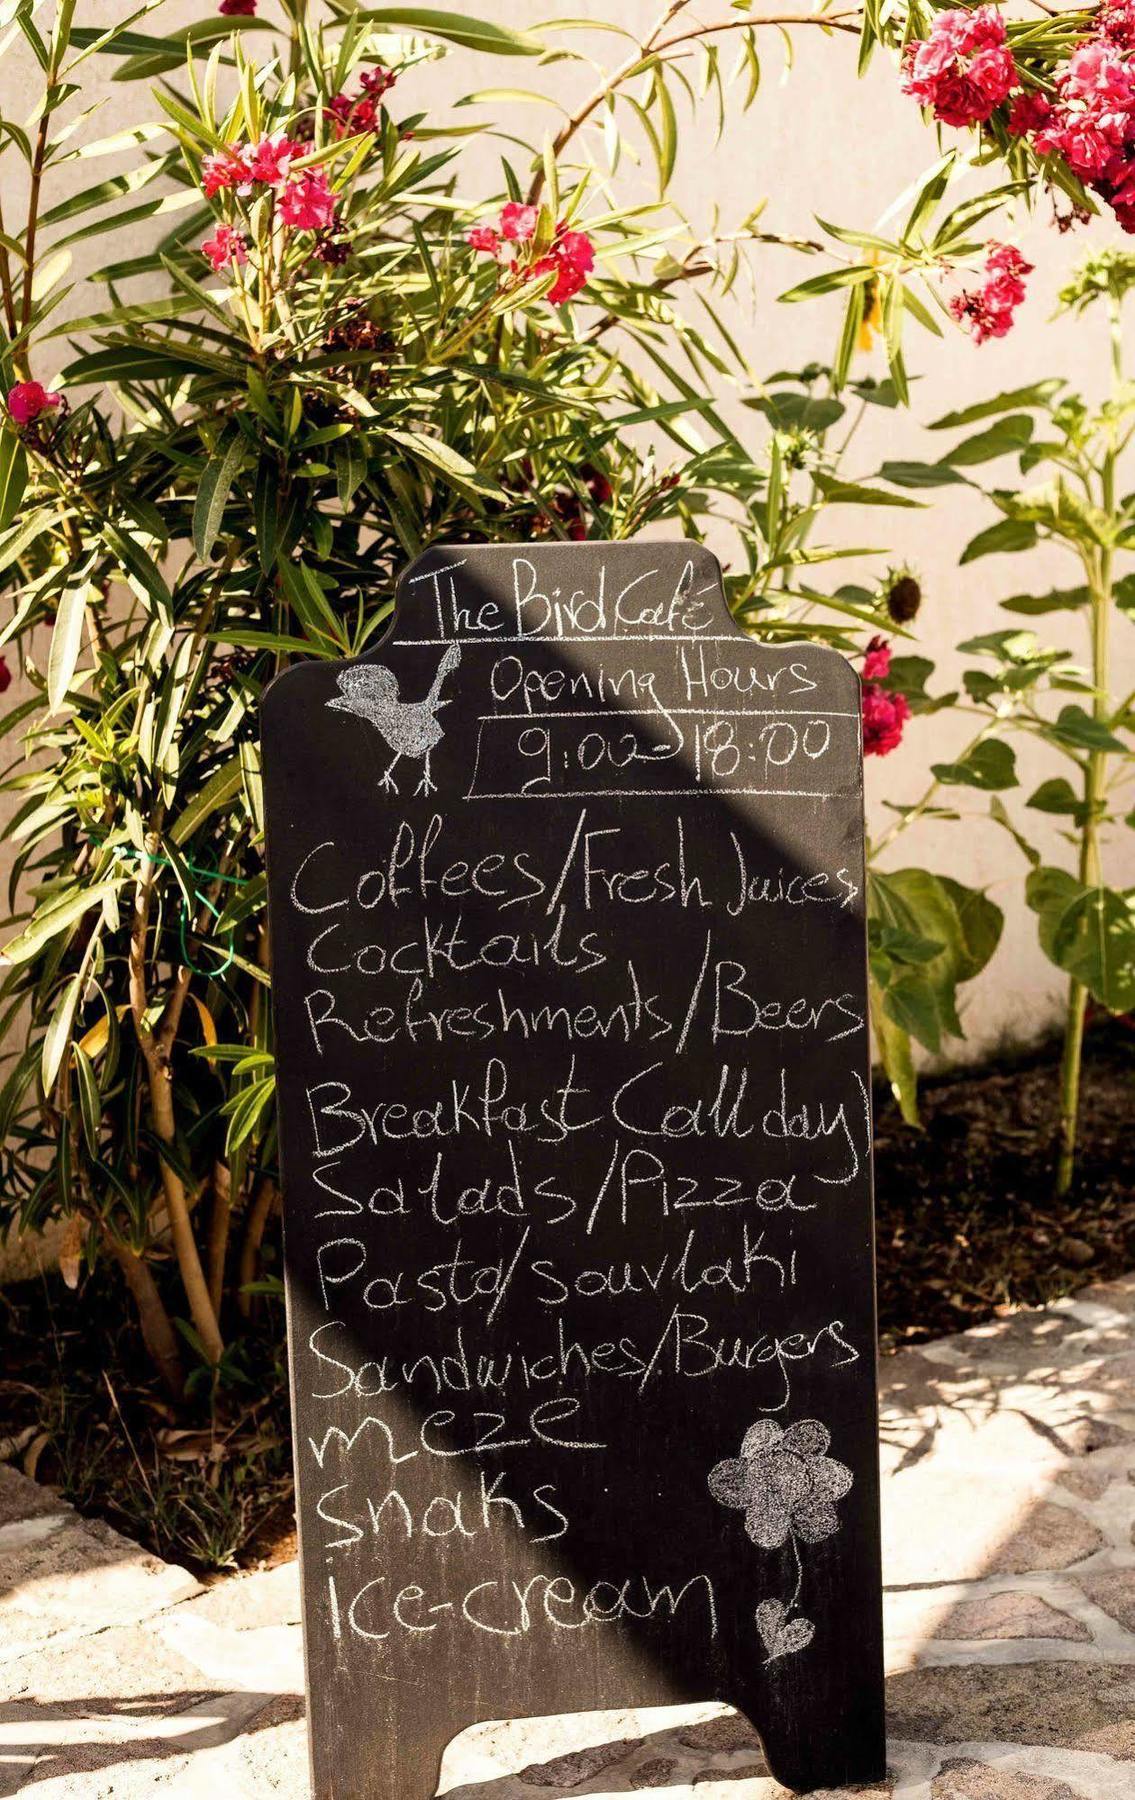 The Bird Café
Opening Hours
9:00-18:00
Coffees/Fresh Juices
Cocktails
Refreshments/Beers
Breakfast (all day)
Salads/Pizza
Pasta/souvlaki
Sandwiches/Burgers
meze
snaks
ice-cream